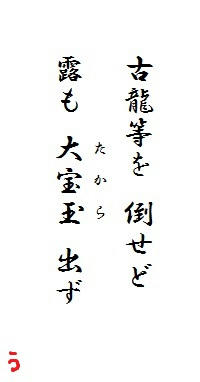 古龍等を 倒せど
露も 大宝玉 出ず
たから
う